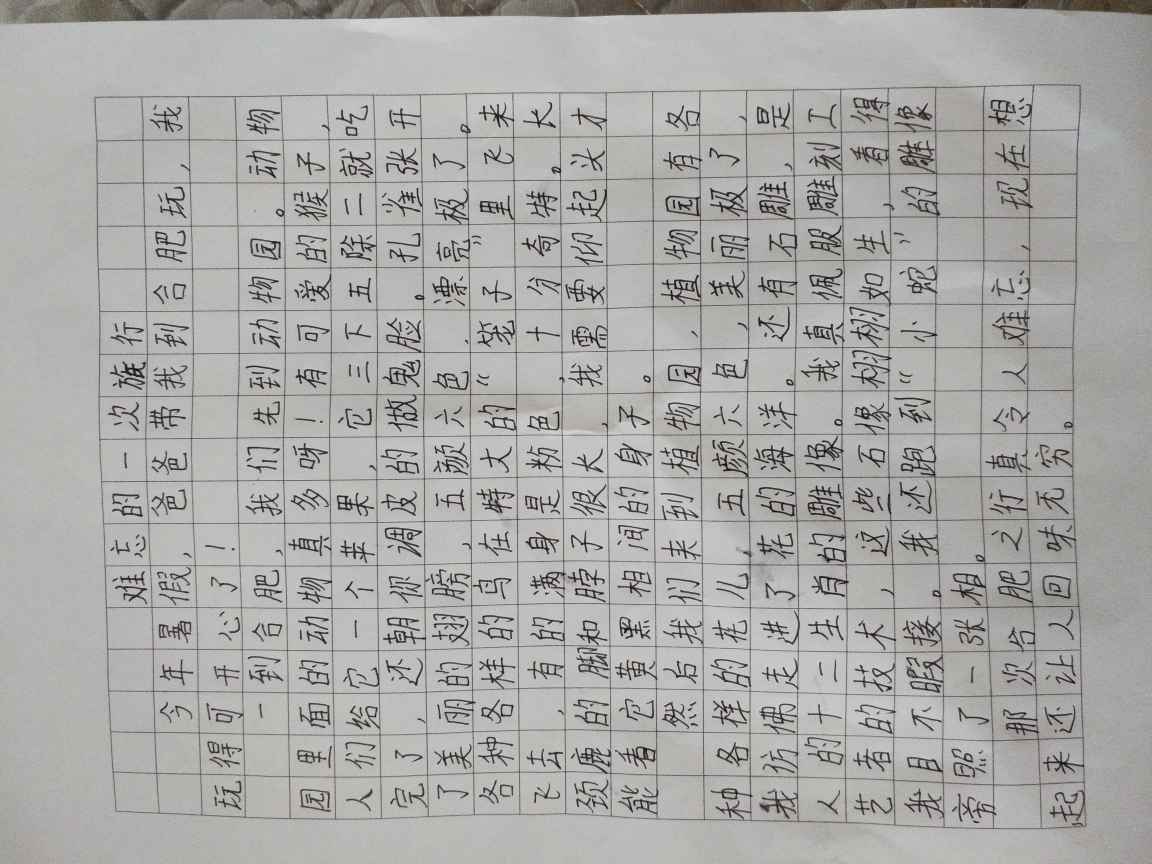 难忘的一次旅行
今年暑假,爸爸带我到合肥玩,我
玩得可开心了!
一到合肥,我们先到动物园。动物
园里面的动物真多呀!有可爱的猴子,
人们给它一个苹果,它三下五除二就吃
完了,还朝你调皮的做鬼脸。孔雀张开
了美丽的翅膀,五颜六色,漂亮极了。
各种各样的鸟在特大的“笼子”里飞来
飞去,有的满身是粉色,十分奇特。长
颈鹿的脚和脖子很长,我需要仰起头才
能看它黄黑相间的身子。
然后我们来到植物园,植物园有各
种各样的花儿,五颜六色,美丽极了,
我仿佛走进了花的海洋。还有石雕,是
人的十二生肖的雕像。我真佩服雕刻工
艺者的技术,这些石像栩栩如生,看得
我目不暇接。我还跑到“小蛇”的雕像
旁照了一张相。
那次合肥之行真令人难忘,现在想
起来还让人回味无穷。